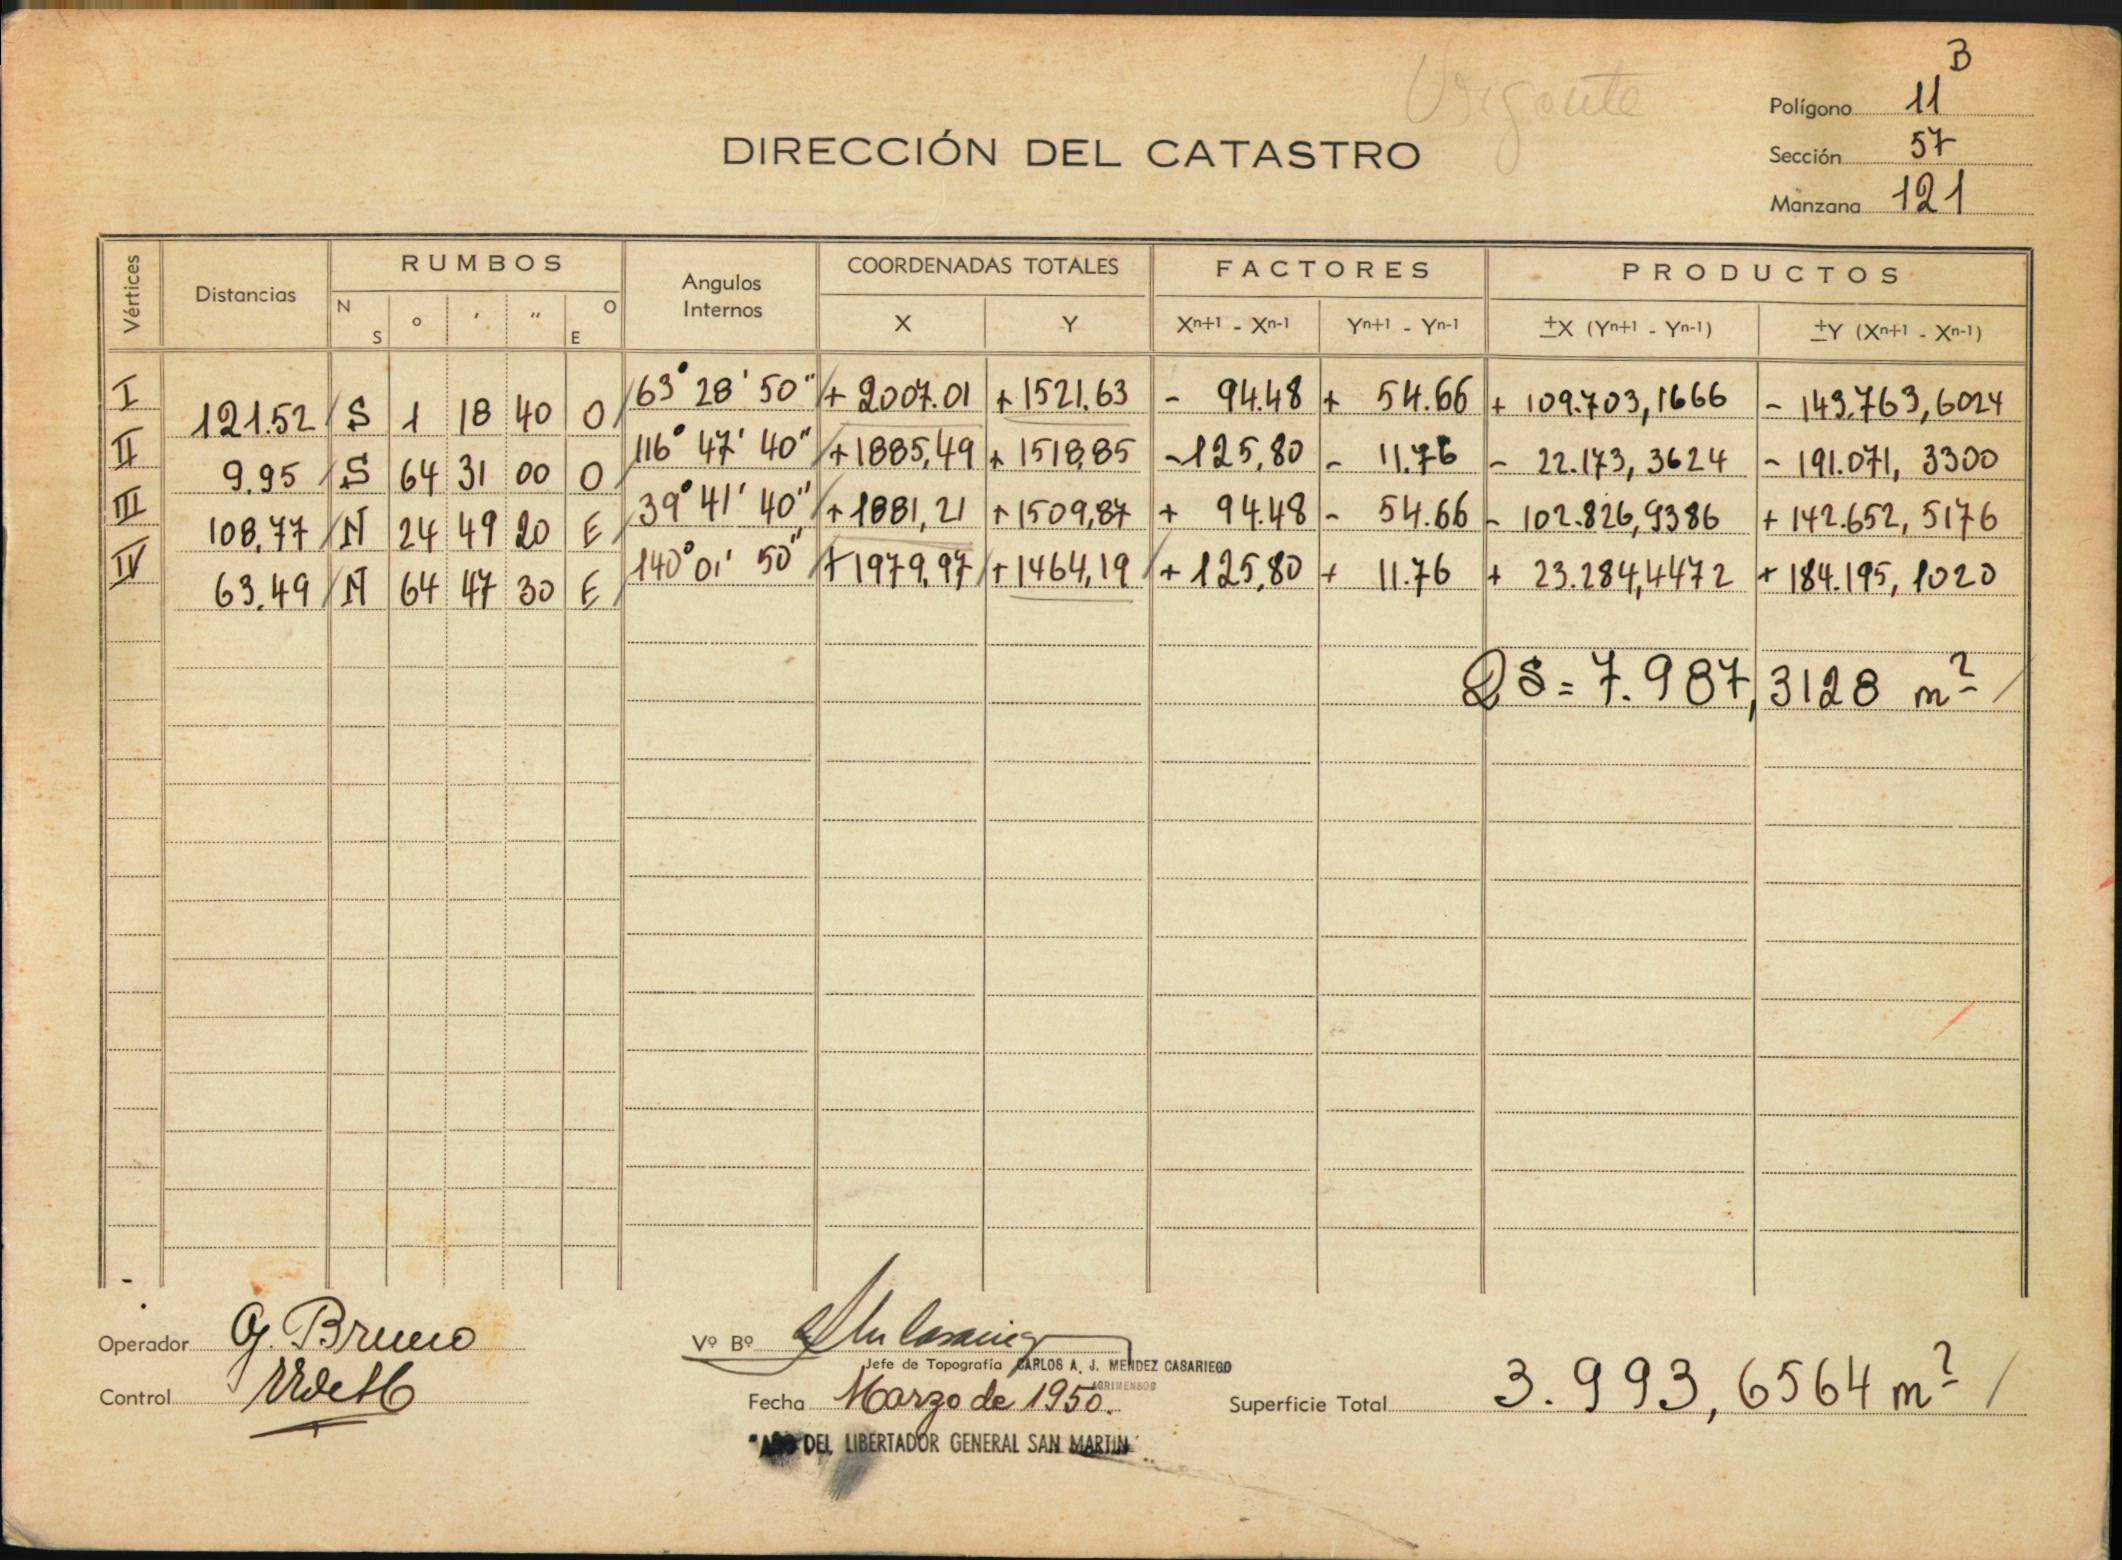 B
Polígono 11
DIRECCIÓN DEL CATASTRO
Sección 57
Manzana 121
Vértices Distancias RUMBOS Angulos Internos COORDENADAS TOTALES FACTORES PRODUCTOS
N S ° ' " O E X Y Xn+1 - Xn-1 Yn+1 - Yn-1 ±X (Yn+1 - Yn-1) ±Y (Xn+1 - Xn-1)
I 63° 28' 50" + 2007.01 + 1521.63 - 94.48 + 54.66 + 109.703,1666 - 143.763,6024
121.52 S 1 18 40 O
II 116° 47' 40" + 1885,49 + 1518,85 - 125,80 - 11.76 - 22.173,3624 - 191.071,3300
9.95 S 64 31 00 O
III 39° 41' 40" + 1881,21 + 1509,87 + 94.48 - 54.66 - 102.826,9386 + 142.652,5176
108,77 N 24 49 20 E
IV 140° 01' 50" + 1979,97 + 1464,19 + 125,80 + 11.76 + 23.284,4472 + 184.195,1020
63.49 N 64 47 30 E
2S = 7.987,3128 m²
Operador G. Bruno
Vº Bº
Jefe de Topografía CARLOS A. J. MENDEZ CASARIEGO
AGRIMENSOR
Control
Fecha Marzo de 1950.
Superficie Total 3.993,6564 m²
"AÑO DEL LIBERTADOR GENERAL SAN MARTIN"